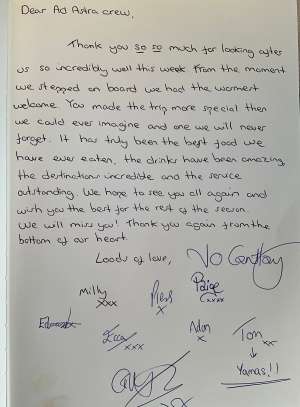 Dear Ad Astra crew,
Thank you so so much for looking after
us so incredibly well this week. From the moment
we stepped on board we had the warmest
welcome. You made the trip more special then
we could ever imagine and one we will never
forget. It has truly been the best food we
have ever eaten, the drinks have been amazing,
the destinations incredible and the service
outstanding. We hope to see you all again and
wish you the best for the rest of the season.
We will miss you! Thank you again from the
bottom of our heart.
Loads of love,
Milly Piers Paige
xxx x xxxx
Adam Tom
xxx x xx
↓
Yamas!!